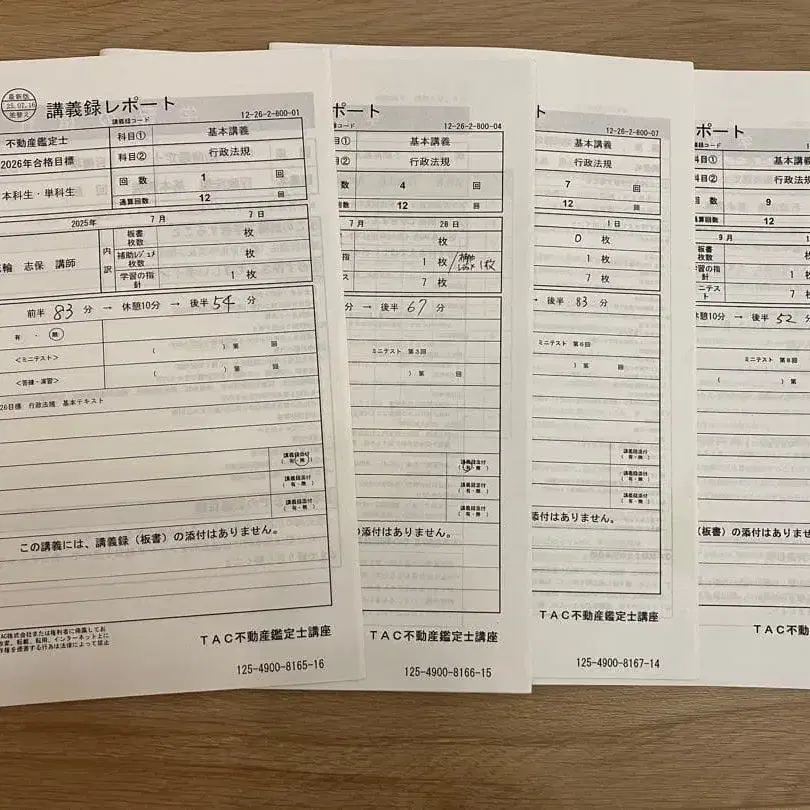 最新版
25.07.16
講義録レポート
講義録コード 12-26-2-800-01
不動産鑑定士
2026年合格目標
本科生・単科生
科目① 基本講義
科目② 行政法規
回数 1 回
通算回数 12 回
2025年 7月 7日
輪 志保 講師
内訳
板書枚数 枚
補助レジュメ枚数 枚
学習の指針 1 枚
前半 83 分 → 休憩10分 → 後半 54 分
有 ・ 無
<ミニテスト> ( )第 回
<答練・演習> ( )第 回
26目標 行政法規 基本テキスト
講義録添付
(有・無)
講義録添付
(有・無)
講義録添付
(有・無)
この講義には、講義録(板書)の添付はありません。
TAC株式会社または権利者に帰属してお
改変、転載、転用、インターネット上に
作権を侵害する行為は法律によって禁止
TAC不動産鑑定士講座
125-4900-8165-16
ポート
コード 12-26-2-800-04
目① 基本講義
目② 行政法規
数 4 回
12 回
7月 28日
枚
1 枚 / 補助レジュメ 1枚
7 枚
分 → 後半 67 分
ミニテスト 第3回
)第 回
(有・無)
講義録添付
(有・無)
講義録添付
(有・無)
の添付はありません。
TAC不動産鑑定士講座
125-4900-8166-15
ト
12-26-2-800-07
基本講義
行政法規
7 回
12 回
1日
0 枚
1 枚
7 枚
→ 後半 83 分
ミニテスト 第6回
)第 回
講義録添付
(有・無)
講義録添付
(有・無)
講義録添付
(有・無)
添付はありません。
TAC不動産鑑定士講座
125-4900-8167-14
ポート
講義録コード
科目① 基本講義
科目② 行政法規
回数 9
通算回数 12
9月
板書枚数 枚
学習の指針 1 枚
ミニテスト 7 枚
休憩10分 → 後半 52 分
ミニテスト 第8回
)第 回
(板書)の添付はありません。
TAC不動産鑑定士